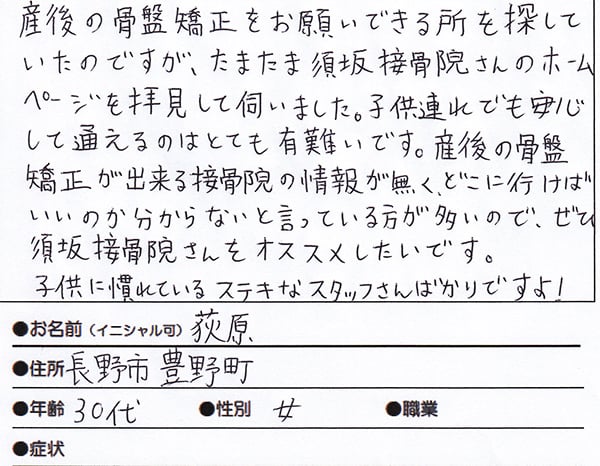 産後の骨盤矯正をお願いできる所を探して
いたのですが、たまたま須坂接骨院さんのホーム
ページを拝見して伺いました。子供連れでも安心
して通えるのはとても有難いです。産後の骨盤
矯正が出来る接骨院の情報が無く、どこに行けば
いいのか分からないと言っている方が多いので、ぜひ
須坂接骨院さんをオススメしたいです。
子供に慣れているステキなスタッフさんばかりですよ!
●お名前(イニシャル可) 荻原
●住所 長野市豊野町
●年齢 30代 ●性別 女 ●職業
●症状